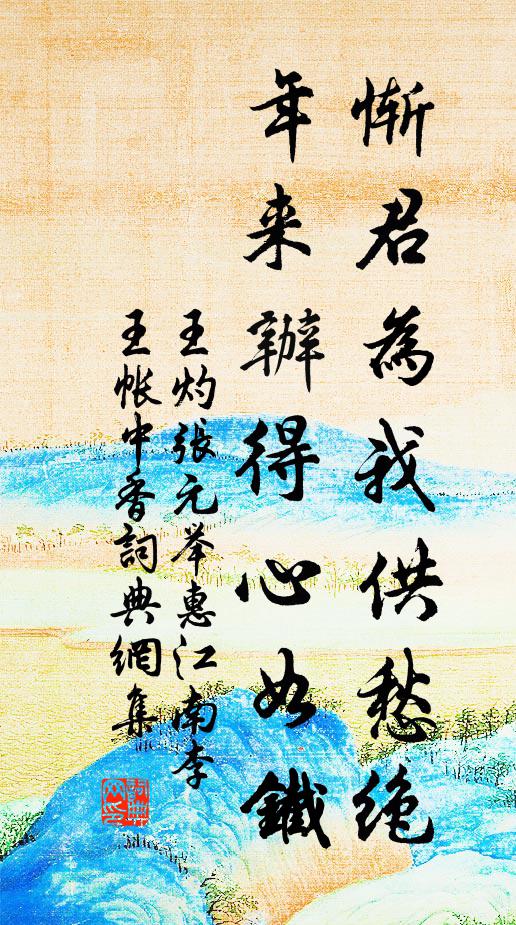 慚君為我供愁絶
年来辦得心如鐵
王灼張元举惠江南李
王帐中香詞典網集